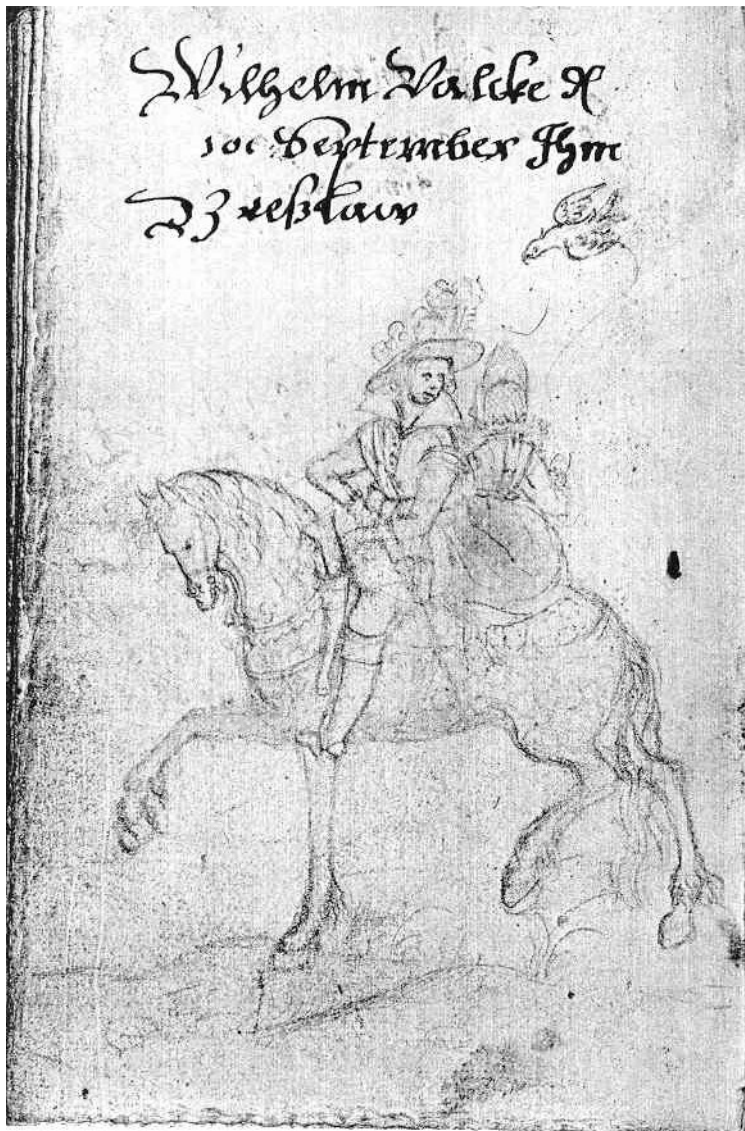 Wilhelm Valcke
10 September Ihm
Breßlaw